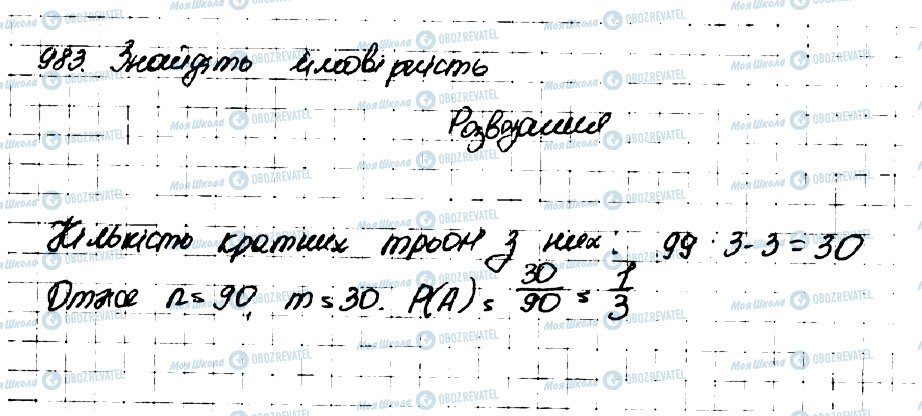 983. Знайдіть ймовірність
Розвязання
Кількість кратних трьом з них: 99 : 3 - 3 = 30
Отже n = 90, m = 30. P(A) = 30/90 = 1/3